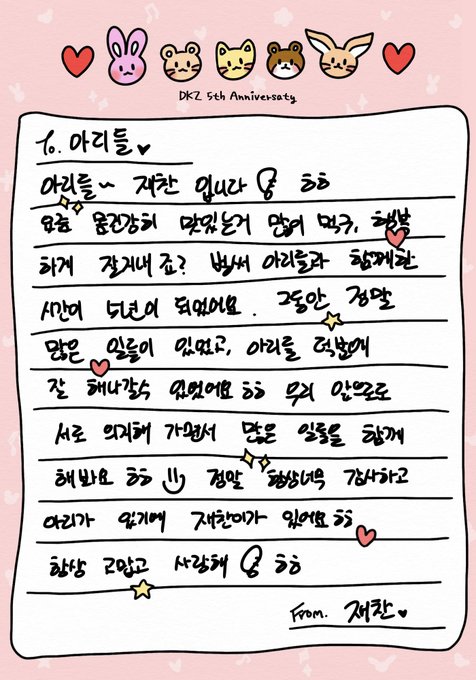 DKZ 5th Anniversaty
To. 아리들
아리들~ 재찬 입니라 ㅎㅎ
요즘 몸건강히 맛있는거 많이 먹구, 행복
하게 잘지내죠? 벌써 아리들과 함께한
시간이 5년이 되었어요. 그동안 정말
많은 일들이 있었고, 아리들 덕분에
잘 해나갈수 있었어요 ㅎㅎ 우리 앞으로도
서로 의지해 가면서 많은 일들을 함께
해봐요 ㅎㅎ 정말 항상너무 감사하고
아리가 있기에 재찬이가 있어요 ㅎㅎ
항상 고맙고 사랑해 ㅎㅎ
From. 재찬